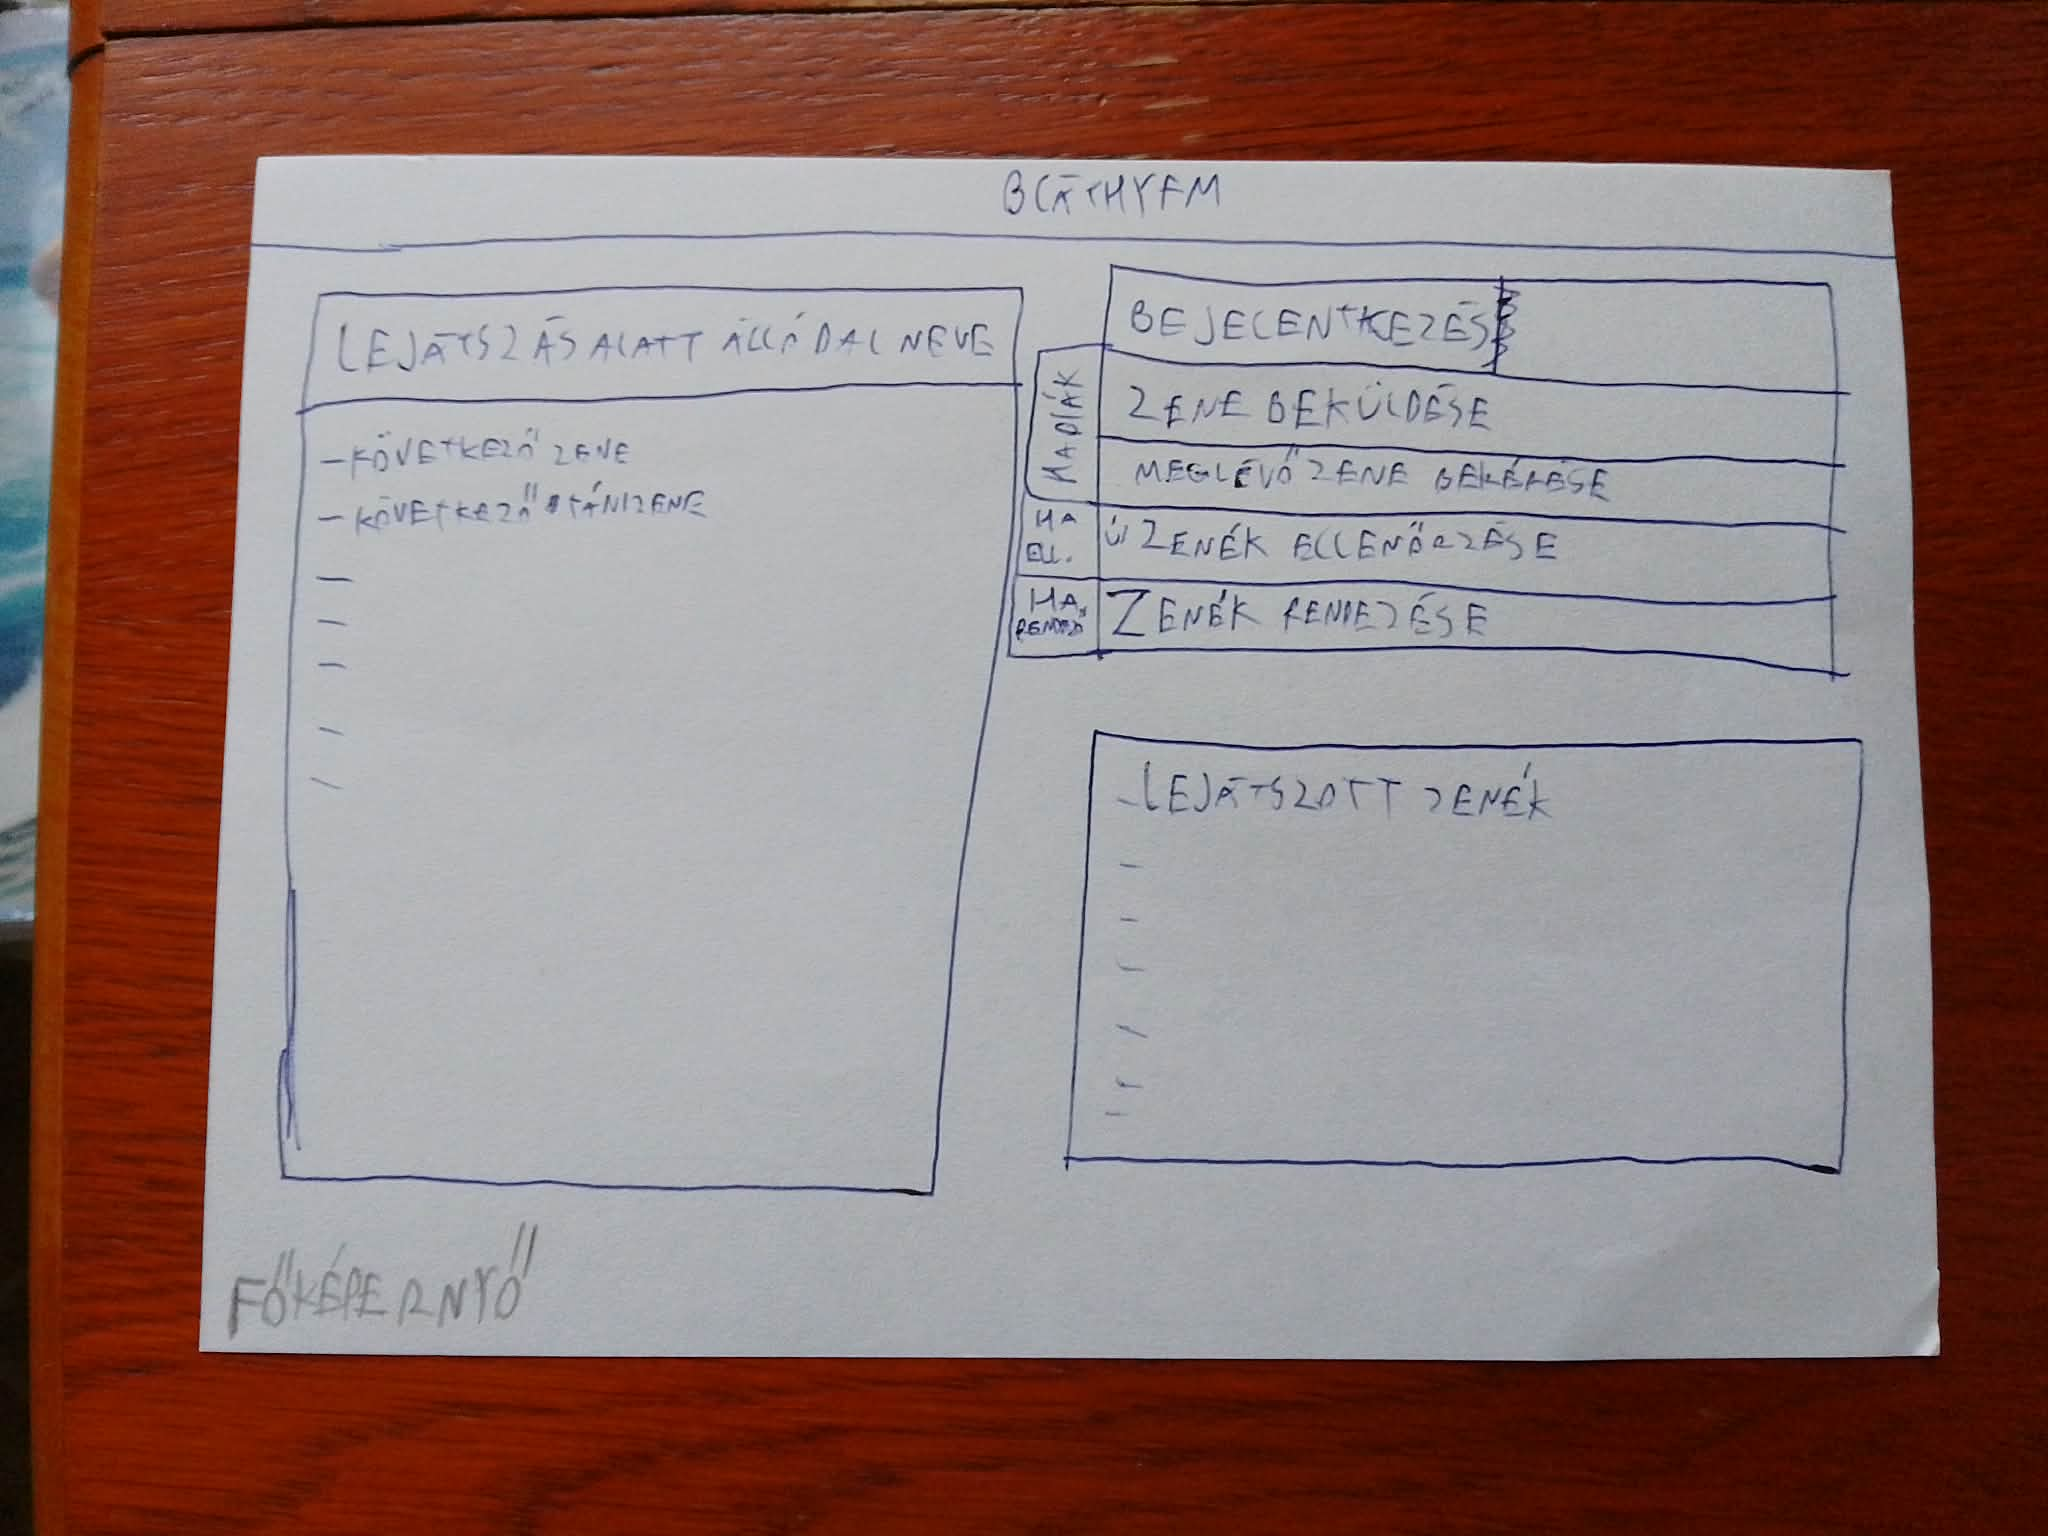 BLÁTHYFM
LEJÁTSZÁS ALATT ÁLLÓ DAL NEVE
- KÖVETKEZŐ ZENE
- KÖVETKEZŐ UTÁNI ZENE
BEJELENTKEZÉS
HA DIÁK
ZENE BEKÜLDÉSE
MEGLÉVŐ ZENE BEKÉRÉSE
HA
ELL.
ÚJ ZENÉK ELLENŐRZÉSE
HA
RENDEZŐ
ZENÉK RENDEZÉSE
- LEJÁTSZOTT ZENÉK
FŐKÉPERNYŐ